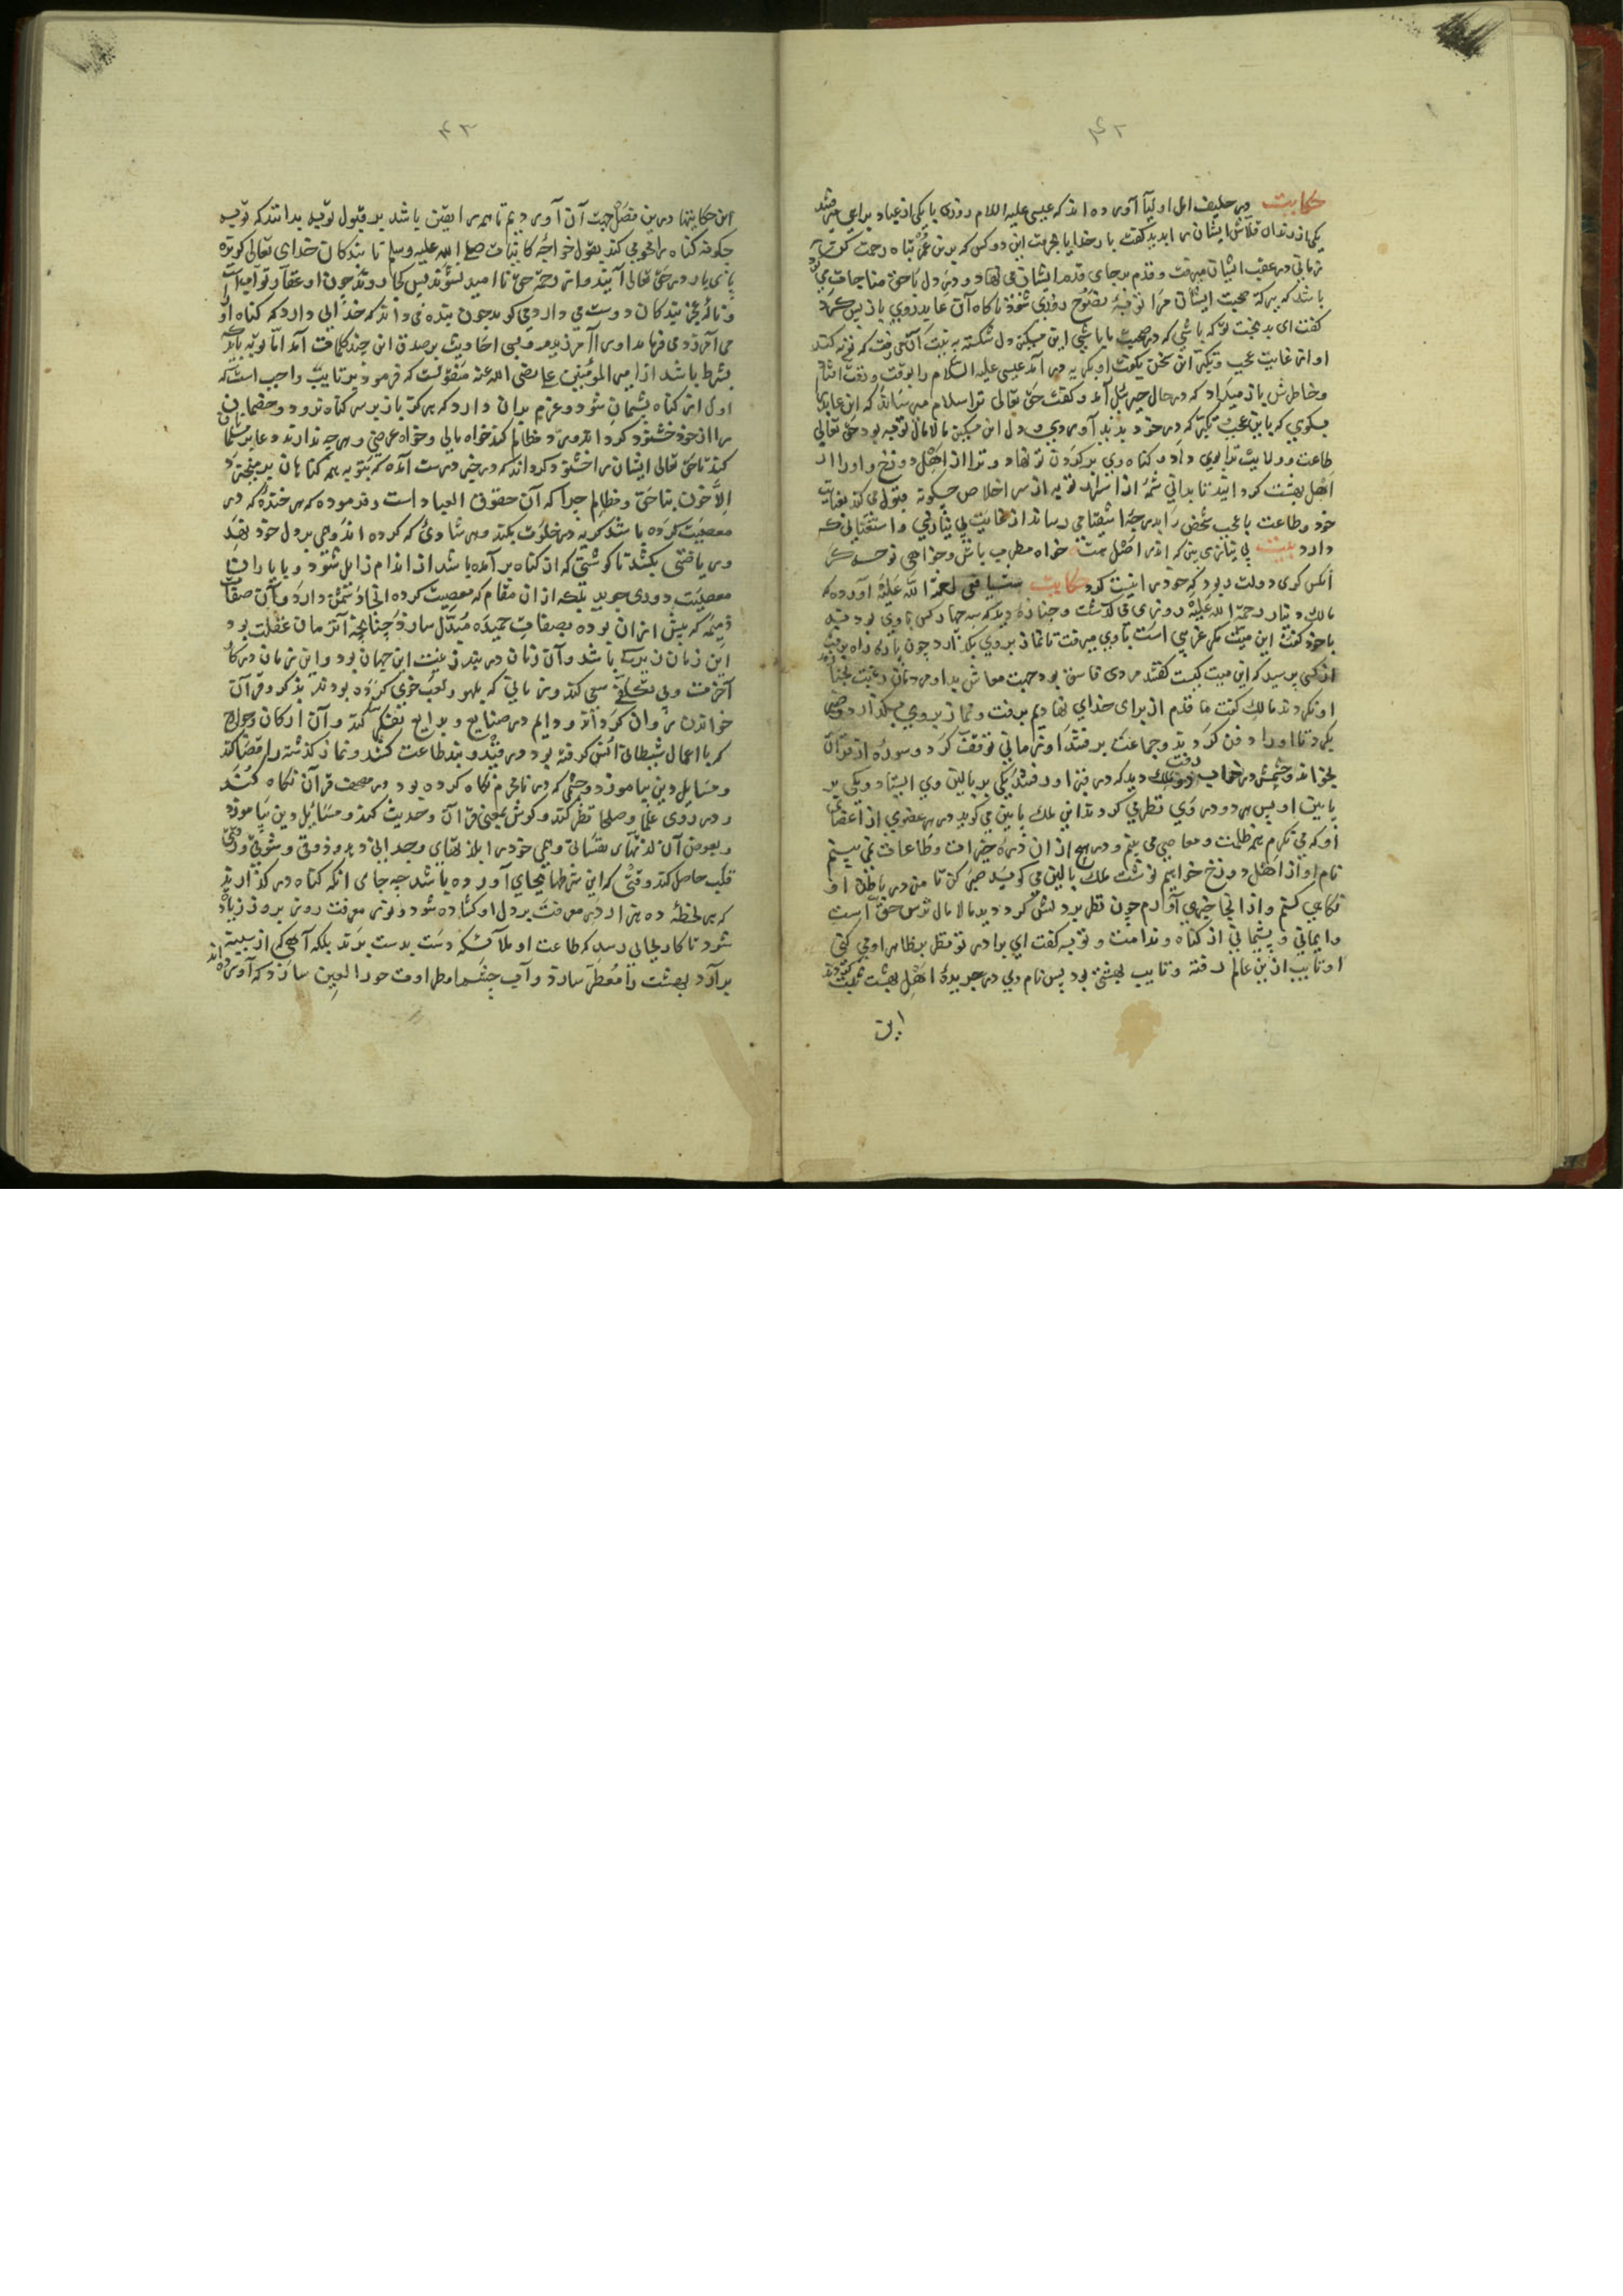 ۴۲
حکایت در حلیة اهل اولیا آورده اند که عیسی علیه السلام روزی با یکی از عباد براهی میرفتند
یکی از رندان قلاش ایشان را بدید گفت بار خدایا بحرمت این دو کس که برین عمر تباه رحمت کن
زمانی در عقب ایشان میرفت و قدم بر جای قدم ایشان می نهاد و در دل با حق مناجات می
باشد که ببرکة صحبت ایشان مرا توبۀ نصوح روزی شود ناگاه آن عابد روی باز پس کرد
گفت ای بدبخت تو که باشی که در صحبت ما باشی این مسکین دل شکسته
او از غایت عجب و تکبر این سخن بگفت او بگریه در آمد عیسی علیه السلام را
و خاطرش باز میداد که در حال جبرئیل آمد و گفت حق تعالی ترا سلام میرساند که این عابد را
بگوی که باین عجب و تکبر که در خود پدید آوردی و دل این مسکین مالامال توبه بود حق تعالی
طاعت و ولایت ترا بوی داد و گناه وی بر گردن تو نهاد و ترا از اهل دوزخ و او را از
اهل بهشت گردانید تا بدانی
خود و طاعت با عجب شخص را بدرجۀ اشقیا می رساند از غایت بی نیازی و استغنایی که
دارد بیت بی نیازی بین که اندر اصل هست خواه مطرب باش و خواهی نوحه گر
آنکس گوی دولت ربود که خود را نیست کرد حکایت شیخ یافعی رحمة الله علیه آورده که
مالک دینار رحمة الله علیه روزی می گذشت و جنازه دید که سه چهار کس با وی بودند
با خود گفت این میت مگر غریبی است با وی میرفت تا نماز بر وی بگذارد چون پاره راه برفت
از کسی پرسید که این میت کیست گفتند مردی فاسق بود جهت معاش بد او مردمان رغبت بجنازه
او نکردند مالک گفت ما قدم از برای خدای نهادیم برفت و نماز بر وی بگذارد و صبر
بکرد تا او را دفن کردند و جماعت برفتند او زمانی توقف کرد و سورۀ از قرآن
بخواند و چشمش در خواب رفت دو ملک دید که در قبر او رفتند یکی بر بالین وی ایستاد و یکی بر
پایین او پس هر دو در وی نظر می کردند این ملک پایین می گوید در هر عضوی از اعضای
او که می نگرم همه ظلمت و معاصی می بینم و در هیچ از آن ذرۀ خیرات و طاعات نمی بینم
نام او از اهل دوزخ خواهیم نوشت ملک بالین می گوید صبر کن تا من در باطن او
نگاهی کنم و از انجا خبری آورم چون نظر بر دلش کرد دید مالامال ترس حق است
و ایمانی و پشیمانی از گناه و ندامت و توبه گفت ای برادر تو نظر بظاهر او می کنی
او تایب ازین عالم رفته و تایب بهشتی بود پس نام وی در جریدۀ اهل بهشت ثبت کردند
این
۴۳
این حکایتها درین فصل جهت آن آوردیم تا همه را یقین باشد بر قبول توبه بدانند که توبه
چگونه گناه را محو می کند بقول خواجۀ کاینات صلی الله علیه وسلم تا بندگان خدای تعالی
بازی یار در حق تعالی آیند و از رحمة حق نا امید نشوند پس کجا روند چون او غفار و تواب است
و ناله عجز بندگان دوست می دارد می گوید چون بنده می داند که خدایی دارد که گناه او
می آمرزد می فرماید او را آمرزیدم و این احادیث بر صدق این چند کلمات آمد اما توبه باید
بشرط باشد از امیر المؤمنین علی رضی الله عنه منقولست که فرمود بر تایب واجب است که
اول از گناه پشیمان شود و عزم بر آن دارد که هرگز باز بر سر گناه نرود و خصمان
را از خود خشنود گرداند و رد مظالم کند خواه مالی و خواه عرضی و هر چه ندارند دعا بر مسلمانان
کند تا حق تعالی ایشان را خشنود گرداند که در خبر درست آمده که بتوبه همه گناهان بریزد
الا خون بناحق و مظالم چرا که آن حقوق العباد است و فرموده که هر خندۀ که در
معصیت کرده باشد گریه در خلوت بکند و هر شادی که کرده اندوهی بر دل خود نهد
و ریاضتی بکشد تا گوشتی که از گناه برآمده باشد از اندام زایل شود و با یاران
معصیت دوری جوید بلکه از آن مقام که معصیت کرده انجا دشمن دارد و آن صفات
ذمیمه که پیش از آن بوده بصفات حمیده مبدل سازد چنانچه آن زمان غفلت بود
این زمان باشد و آن زمان در بند زینت این جهان بود و این زمان در کار
آخرت و بی تکلفی سعی کند و زبانی که بلهو و لعب خوی کرده بودند بذکر و قرآن
خواندن روان گرداند و دایم در صنایع و بدایع تفکر کند و آن ارکان و جوارح
که با اعمال شیطانی انس گرفته بود در قید و بند طاعت کشند و نماز گذشته را قضا کند
و مسایل دین بیاموزد و چشمی که در نامحرم نگاه کرده بود در مصحف قرآن نگاه کند
و در روی علما و صلحا نظر کند و گوش بمعنی قرآن و حدیث کند و مسایل دین بیاموزد
و بعوض آن لذتهای نفسانی وهمی خود را بلذتهای وجدانی دیدن و ذوق و شوق
قلب حاصل کند وقتی که این شرطها بجای آورده باشد چه جای انکه گناه در گذارند
که هر لحظۀ ده هزار در معرفت بر دل او گشاده شود و نور معرفت روز بروز زیاده
شود تا کار بجایی رسد که طاعت او ملائکه دست بدست برند بلکه آهی که از سینه
برآرد بهشت را معطر سازد و آب چشم او طراوت حور العین سازد که آورده اند